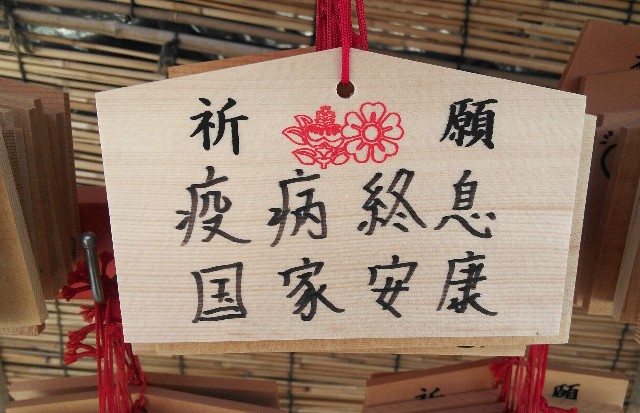 祈 願
疫病終息
国家安康
祈 願